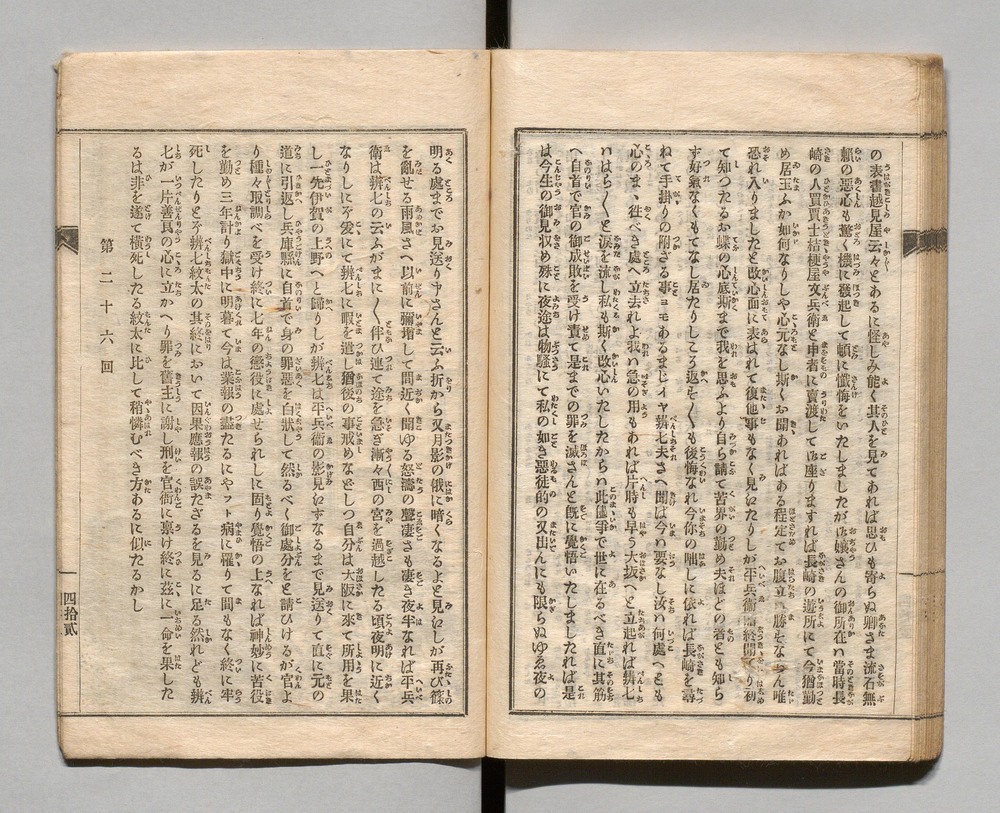 の表書越見屋云々とあるに怪しみ能く其人を見てあれば思ひも寄らぬ卿さま流石無
頼の惡心も驚く機に發起して頓に懺悔をいたしましたが孃さんの御所在ハ當時長
崎の人買賈士桔梗屋文兵衞と申者に賣渡して御座りますれば長崎の遊所にて今猶勤
め居玉ふか如何なりしや心元なし斯くお聞あればある程定てお腹立ハ勝をなおん唯
恐れ入りましたと改心面に表はれて復他事もなく見たりしが平兵衞り初
て知つたるお蝶の心底斯まで我を思ふより自ら請て苦界の勤め夫ほどの者とも知ら
ず好氣なくもてなし居たりしこそ返々も後悔なれ今你の咄しに依れば長崎を尋
ねて手掛りの附ざる事ヨモあるまじイヤ辨七夫さへ聞は今ハ要なし汝ハ何處へとも
心のまゝ徃べき處へ立去れよ我ハ急の用もあれば片時も早う大坂へと立起れば辨七
ははら〱と淚を流し私も斯く改心いたしたからハ此儘爭で世に在るべき直に其筋
へ自首で官の御成敗を受け責て是までの罪を滅さんと既に覺悟いたしましたれば是
は今生の御見収め殊に夜途は物騷にて私の如き惡徒的の又出んにも限らぬゆゑ夜の
明る處までお見送り申さんと云ふ折から又月影の俄に暗くなるよと見しが再び篠
を亂せる雨風さへ以前に彌增して間近く聞ゆる怒濤の聲凄さも凄き夜半なれば平兵
衞は辨七の云ふがまに〱伴ひ連て途を急ぎ漸々西の宮を過越したる頃夜明に近く
なりしにぞ爰にて辨七に暇を遣し猶後の事戒めなどしつ自分は大阪に來て所用を果
し一先伊賀の上野へと歸りしが辨七は平兵衞の影見ゑずなるまで見送りて直に元の
道に引返し兵庫縣に自首で身の罪惡を白狀して然るべく御處分をと請ひけるが官よ
り種々取調べを受け終に七年の懲役に處せられしに固り覺悟の上なれば神妙に苦役
を勤め三年計り獄中に明暮て今は業報の盡たるにやフト病に罹りて間もなく終に牢
死したりとぞ辨七紋太の其終において因果應報の誤たざるを見るに足る然れども辨
七が一片善良の心に立かへり罪を舊主に謝し刑を官衙に專け終に茲に一命を果した
るは非を遂て橫死したる紋太に比して稍憐むべき方あるに似たるかし
第二十六回
四拾貳